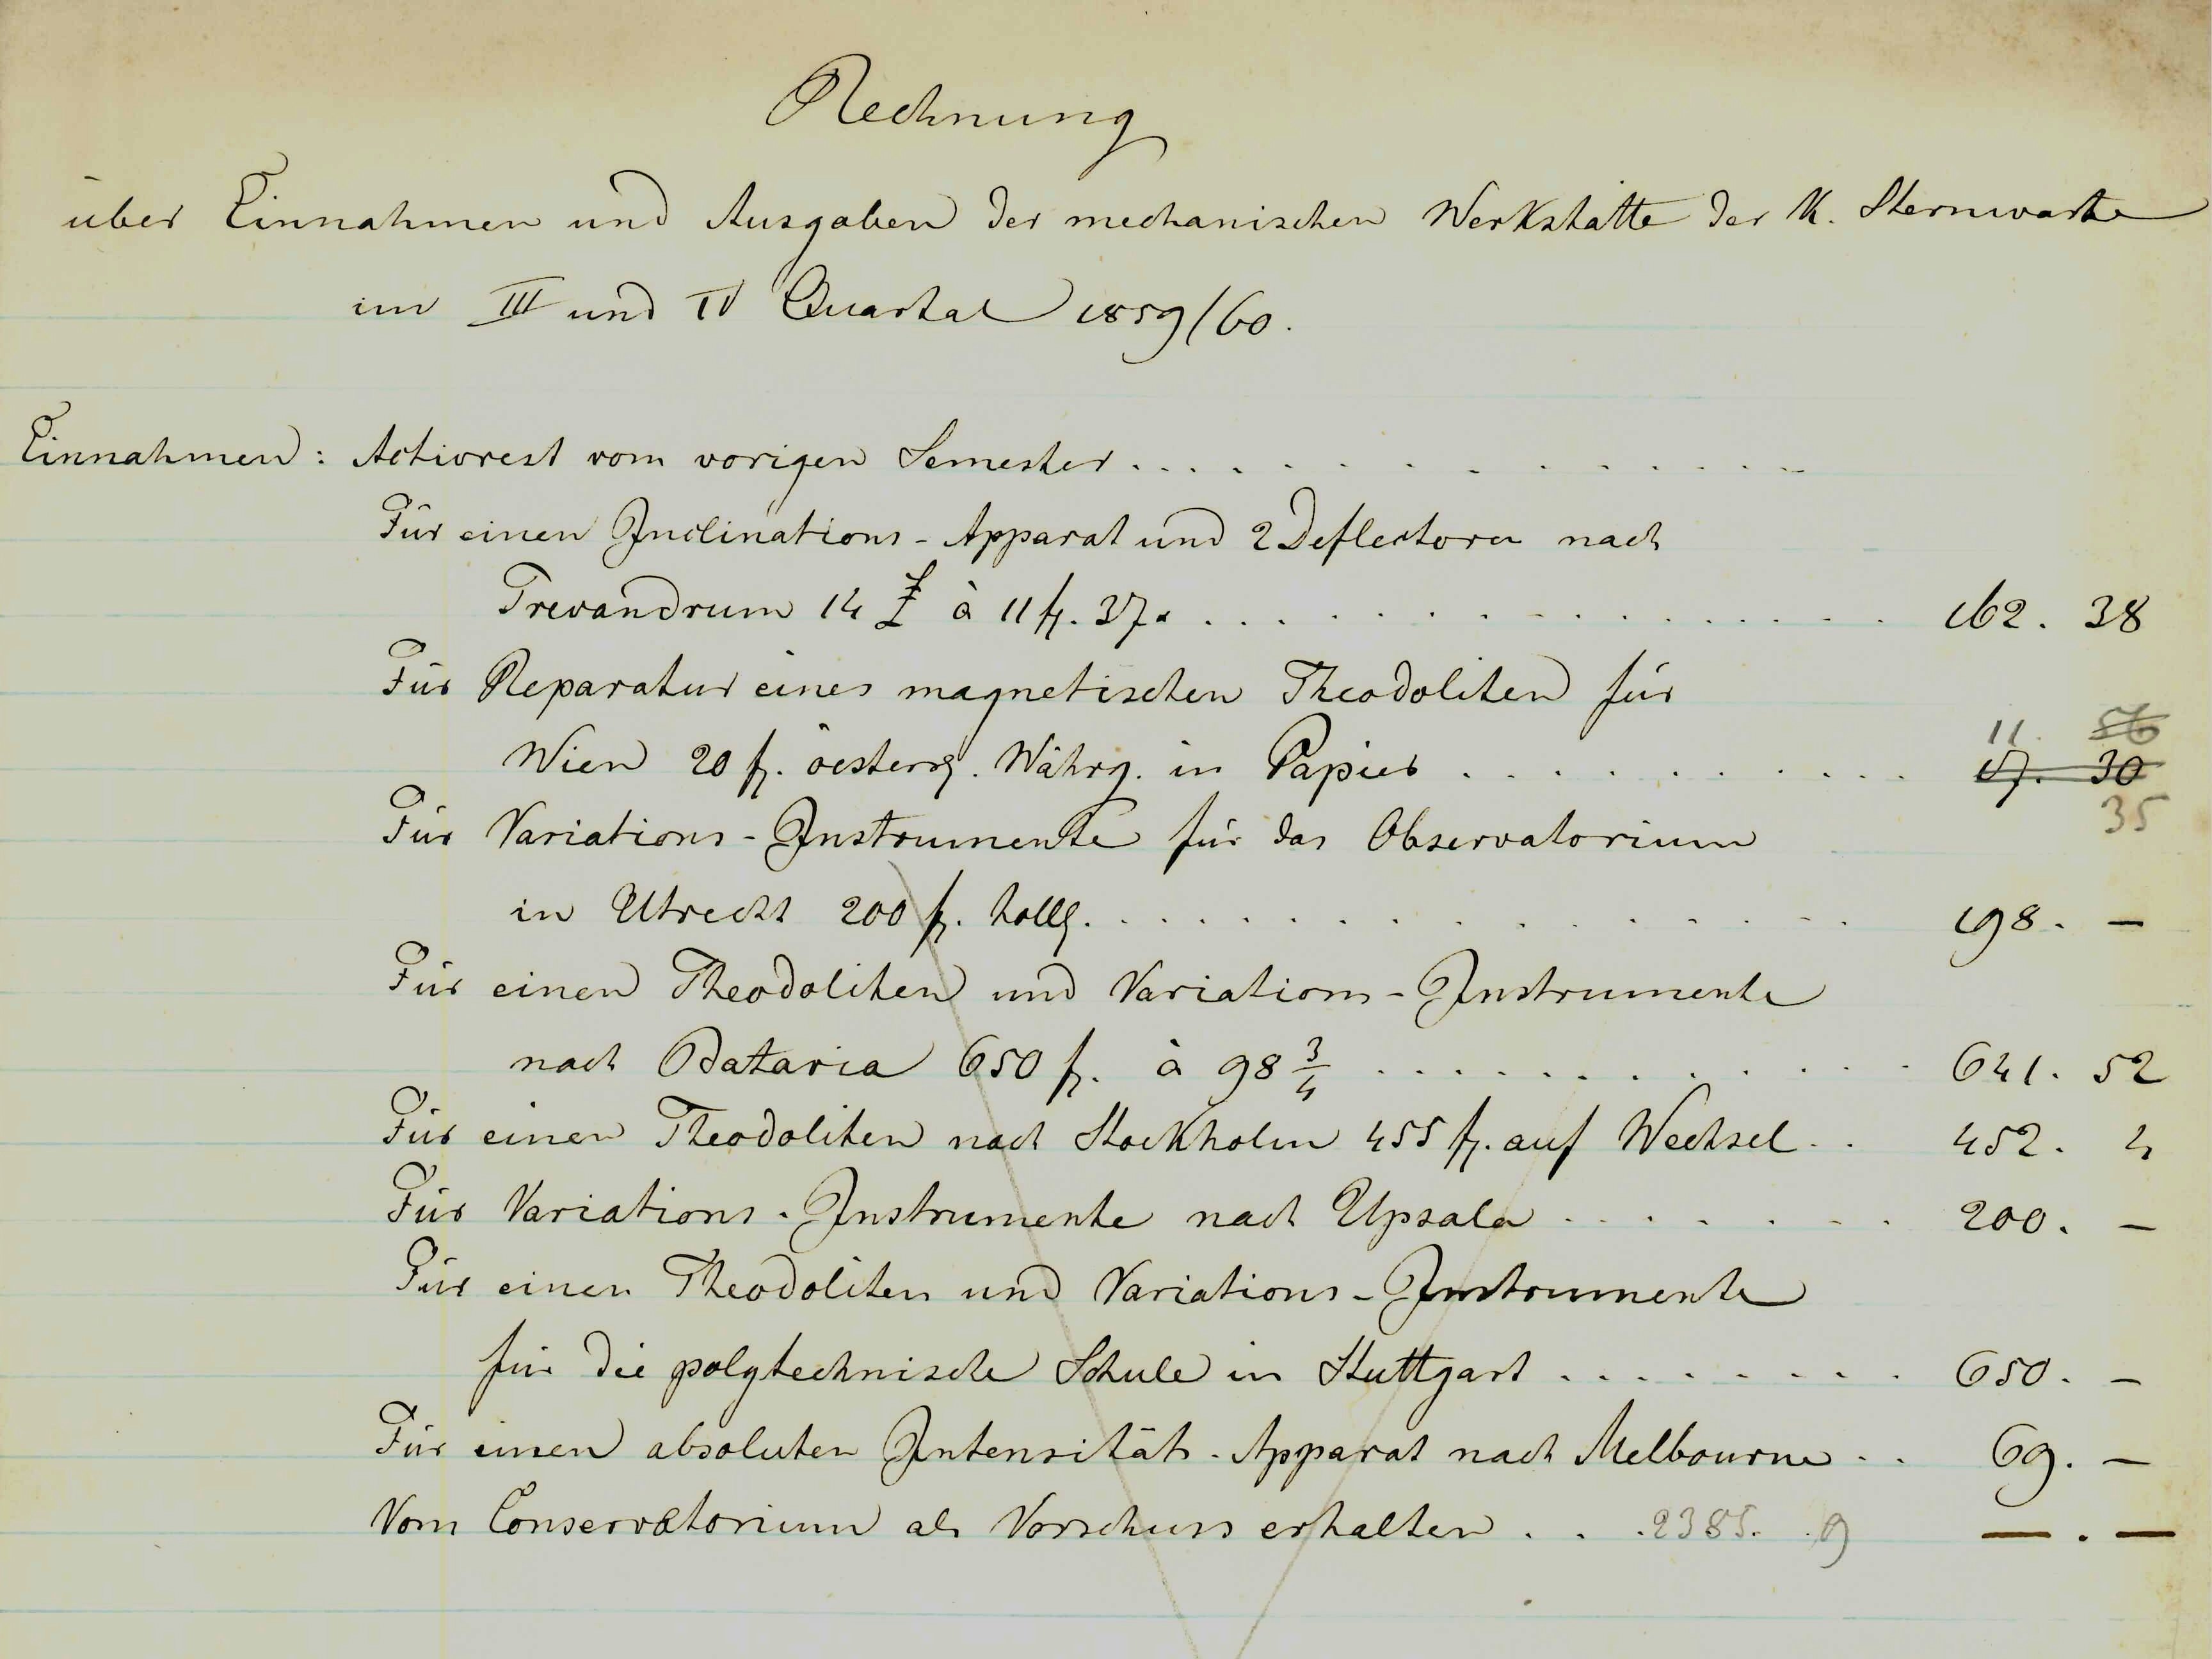 Rechnung
über Einnahmen und Ausgaben der mechanischen Werkstätte der K. Sternwarte
im III und IV Quartal 1859/60.
Einnahmen: Activrest vom vorigen Semester . . . . . . . . . . . .
Für einen Inclinations-Apparat und 2 Deflectoren nach
Trevandrum 14 £ à 11 fl. 37x . . . . . . . . . . . . 162. 38
Für Reparatur eines magnetischen Theodoliten für
11. 56
Wien 20 fl. oesterr. Währg. in Papier . . . . . . . . . 17. 30
35
Für Variations-Instrumente für das Observatorium
in Utrecht 200 fl. holl. . . . . . . . . . . . . . 198. –
Für einen Theodoliten und Variations-Instrumente
nach Batavia 650 fl. à 98 3/4 . . . . . . . . . . . 641. 52
Für einen Theodoliten nach Stockholm 455 fl. auf Wechsel . . 452. 4
Für Variations-Instrumente nach Upsala . . . . . . . 200. –
Für einen Theodoliten und Variations-Instrumente
für die polytechnische Schule in Stuttgart . . . . . . . . 650. –
Für einen absoluten Intensität-Apparat nach Melbourne . . 69. –
Vom Conservatorium als Vorschuss erhalten . . . 2385. 9 — . —